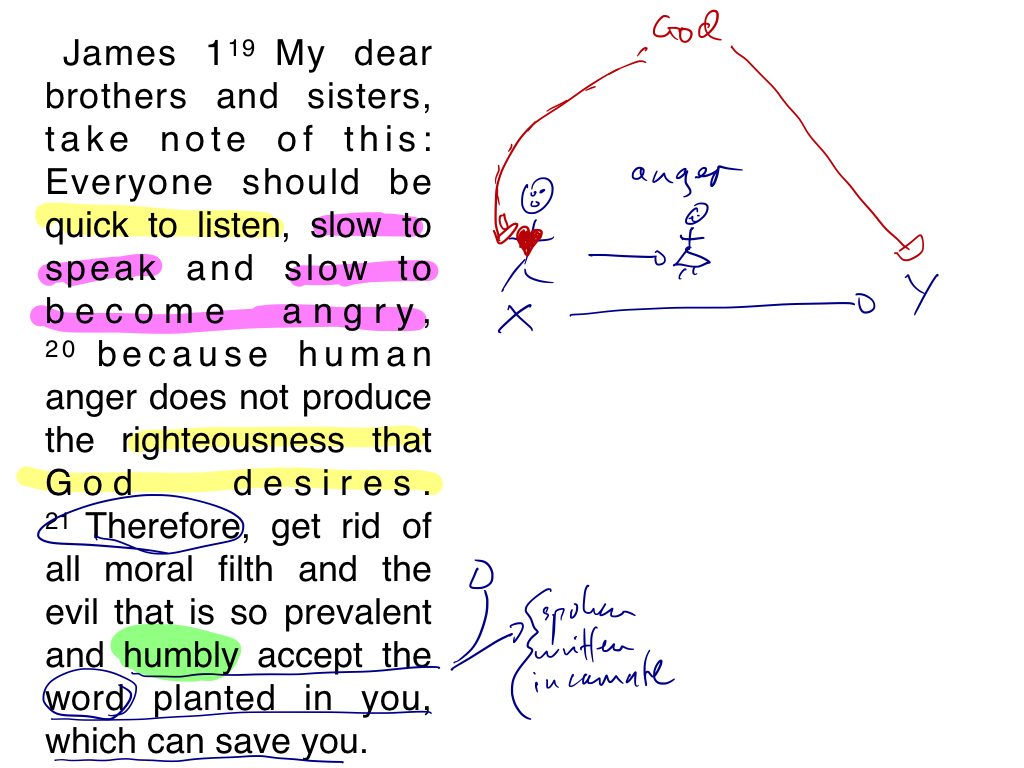 James 1¹⁹ My dear
brothers and sisters,
take note of this:
Everyone should be
quick to listen, slow to
speak and slow to
become angry,
²⁰ because human
anger does not produce
the righteousness that
God desires.
²¹ Therefore, get rid of
all moral filth and the
evil that is so prevalent
and humbly accept the
word planted in you,
which can save you.
God
anger
X
Y
spoken
written
incarnate